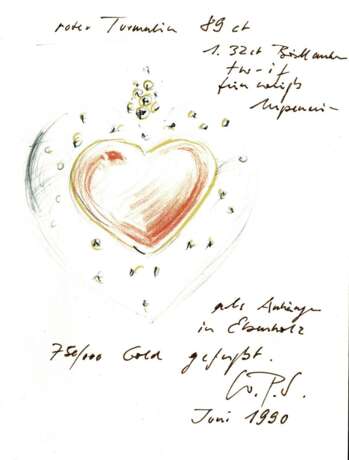 roter Turmalin 89 ct
1.32ct Brillanten
tw-if
fein weiß
lupenrein
als Anhänger
in Ebenholz
750/000 Gold gefaßt.
W.P.S.
Juni 1990